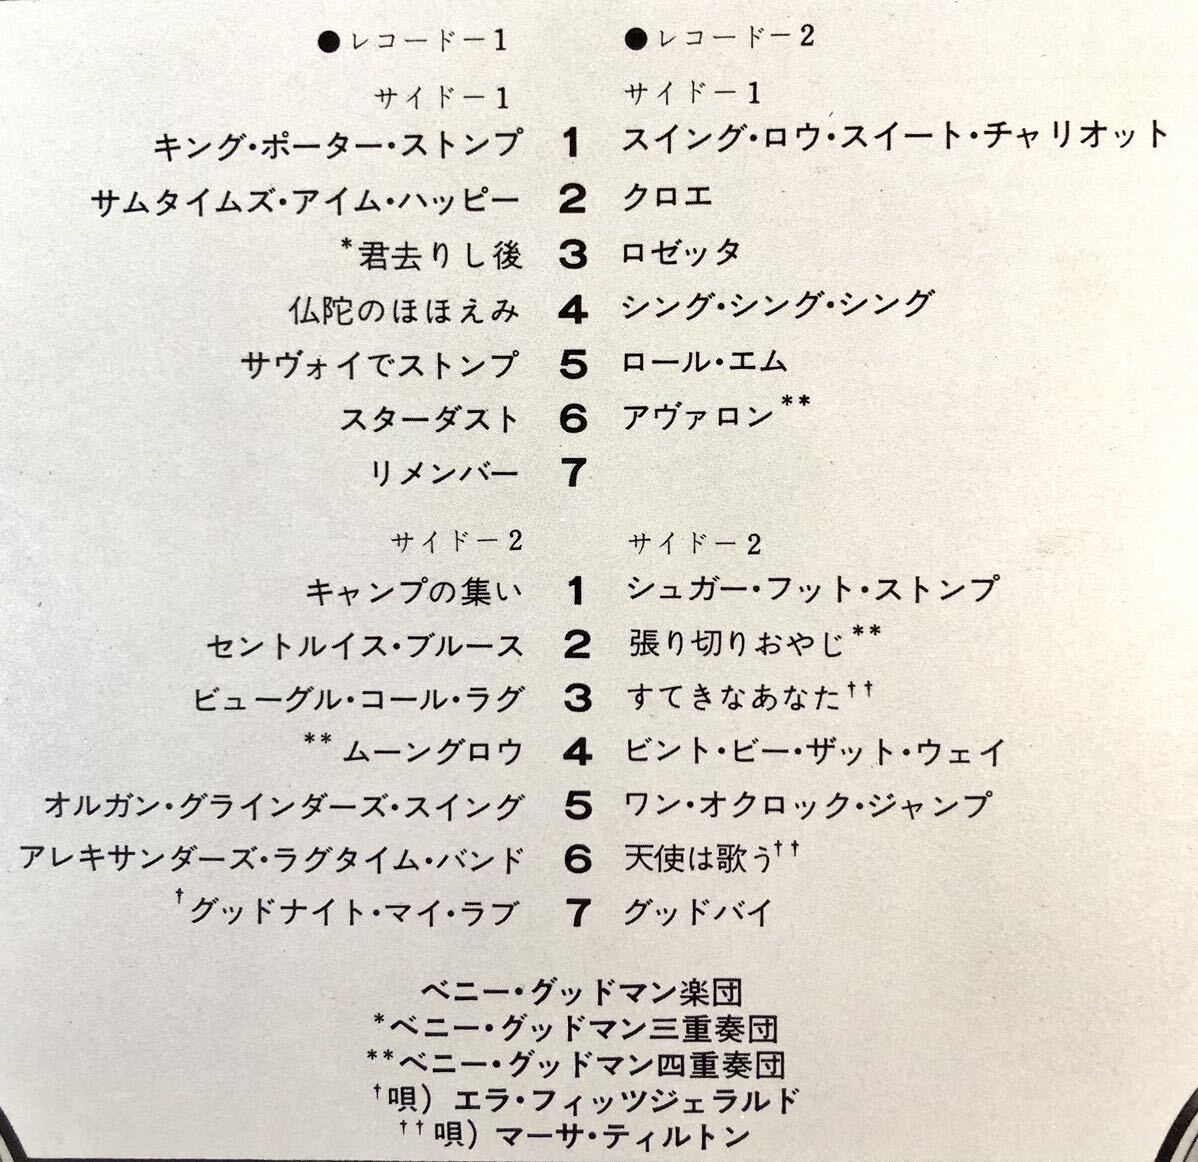 ●レコード－1
サイド－1
キング・ポーター・ストンプ 1
サムタイムズ・アイム・ハッピー 2
*君去りし後 3
仏陀のほほえみ 4
サヴォイでストンプ 5
スターダスト 6
リメンバー 7
サイド－2
キャンプの集い 1
セントルイス・ブルース 2
ビューグル・コール・ラグ 3
**ムーングロウ 4
オルガン・グラインダーズ・スイング 5
アレキサンダーズ・ラグタイム・バンド 6
†グッドナイト・マイ・ラブ 7
●レコード－2
サイド－1
スイング・ロウ・スイート・チャリオット
クロエ
ロゼッタ
シング・シング・シング
ロール・エム
アヴァロン**
サイド－2
シュガー・フット・ストンプ
張り切りおやじ**
すてきなあなた††
ビント・ビー・ザット・ウェイ
ワン・オクロック・ジャンプ
天使は歌う††
グッドバイ
ベニー・グッドマン楽団
*ベニー・グッドマン三重奏団
**ベニー・グッドマン四重奏団
†唄）エラ・フィッツジェラルド
††唄）マーサ・ティルトン